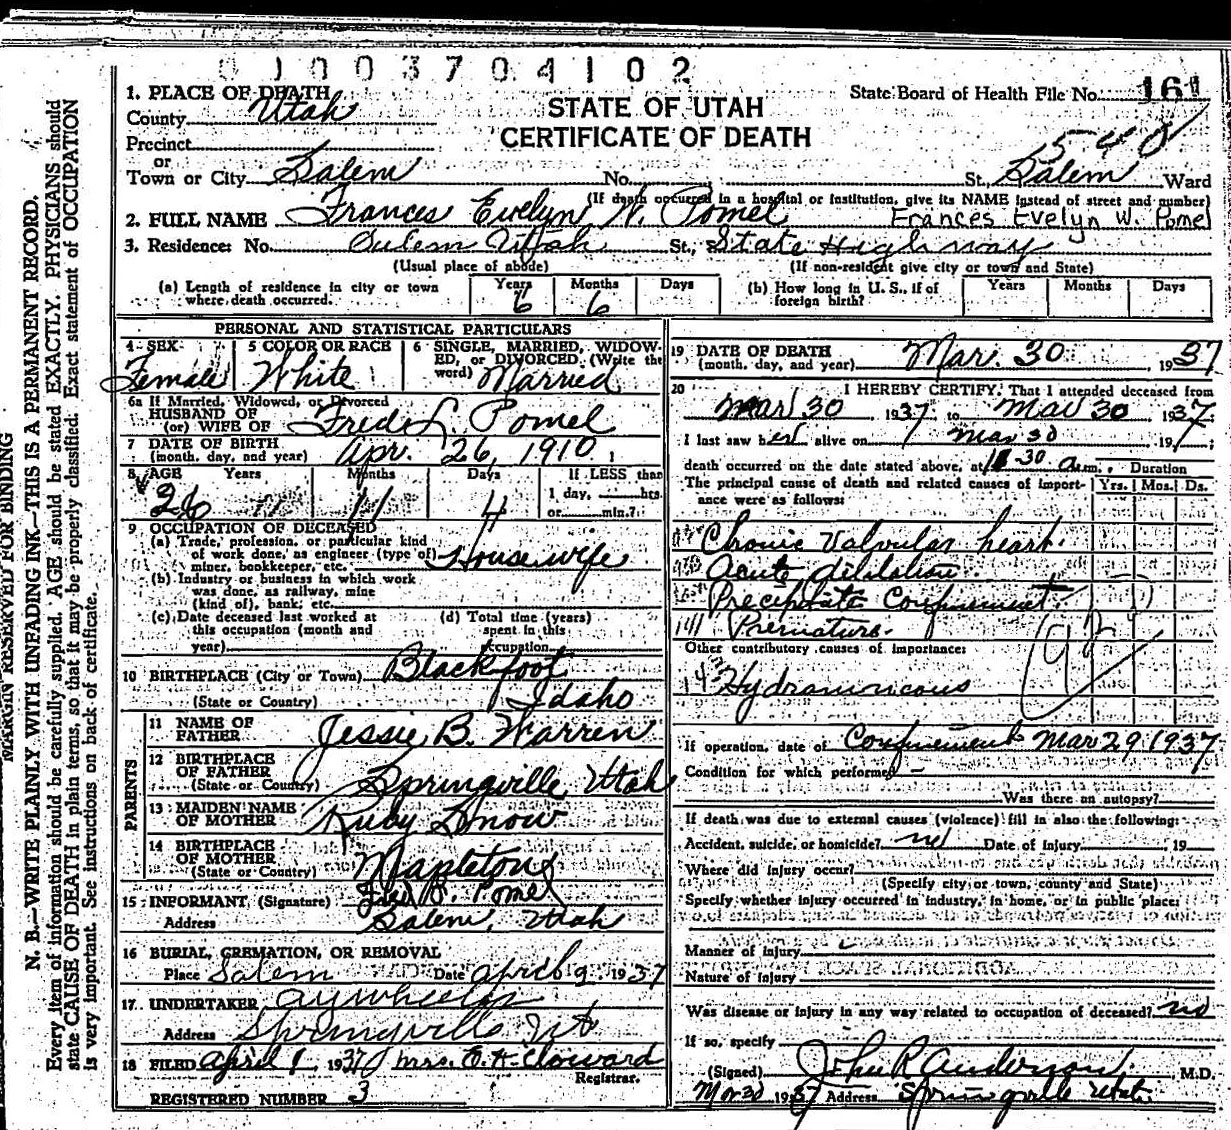 0 1 0 0 3 7 0 4 1 0 2
1. PLACE OF DEATH
STATE OF UTAH
CERTIFICATE OF DEATH
State Board of Health File No. 161
County Utah
540
Precinct
or
Town or City Salem No. St., Salem Ward
(If death occurred in a hospital or institution, give its NAME instead of street and number)
2. FULL NAME Frances Evelyn W. Pomel Frances Evelyn W. Pomel
3. Residence: No. Salem Utah St., State Highway
(Usual place of abode) (If non-resident give city or town and State)
(a) Length of residence in city or town where death occurred. Years 6 Months 6 Days
(b) How long in U. S., if of foreign birth? Years Months Days
PERSONAL AND STATISTICAL PARTICULARS
4 SEX Female
5 COLOR OR RACE White
6 SINGLE, MARRIED, WIDOWED, or DIVORCED. (Write the word) Married
6a If Married, Widowed, or Divorced
HUSBAND OF
(or) WIFE OF Fred L. Pomel
7 DATE OF BIRTH
(month, day, and year) Apr. 26, 1910
8 AGE Years Months Days If LESS than
26 11 4 1 day, hrs.
or min.?
9 OCCUPATION OF DECEASED
(a) Trade, profession, or particular kind
of work done, as engineer (type of)
miner, bookkeeper, etc. Housewife
(b) Industry or business in which work
was done, as railway, mine
(kind of), bank, etc.
(c) Date deceased last worked at
this occupation (month and
year)
(d) Total time (years)
spent in this
occupation
10 BIRTHPLACE (City or Town) Blackfoot
(State or Country) Idaho
PARENTS
11 NAME OF
FATHER Jessie B. Warren
12 BIRTHPLACE
OF FATHER
(State or Country) Springville Utah
13 MAIDEN NAME
OF MOTHER Ruby Snow
14 BIRTHPLACE
OF MOTHER
(State or Country) Mapleton
15 INFORMANT, (Signature) Fred L. Pomel
Address Salem, Utah
16 BURIAL, CREMATION, OR REMOVAL
Place Salem Date April 2 1937
17. UNDERTAKER A Y Wheeler
Address Springville Ut
18 FILED April 1 1937 Mrs. E. A. Cloward
Registrar.
REGISTERED NUMBER 3
19 DATE OF DEATH
(month, day, and year) Mar. 30 1937
20 I HEREBY CERTIFY, That I attended deceased from
Mar 30 1937 to Mar 30 1937
I last saw her alive on Mar 30 1937;
death occurred on the date stated above, at 30 a.m. Duration
The principal cause of death and related causes of importance were as follows: Yrs. Mos. Ds.
Chronic Valvular heart
Acute dilatation
Precipitate Confinement
Premature
Other contributory causes of importance:
Hydramnious
If operation, date of Confinement Mar 29 1937
Condition for which performed –
Was there an autopsy?
If death was due to external causes (violence) fill in also the following:
Accident, suicide, or homicide? no Date of injury 19
Where did injury occur?
(Specify city or town, county and State)
Specify whether injury occurred in industry, in home, or in public place:
Manner of injury
Nature of injury
Was disease or injury in any way related to occupation of deceased? no
If so, specify
(Signed) John R Anderson, M.D.
Mar 30 1937 Address Springville Utah
MARGIN RESERVED FOR BINDING
N. B.—WRITE PLAINLY WITH UNFADING INK—THIS IS A PERMANENT RECORD.
Every item of information should be carefully supplied. AGE should be stated EXACTLY. PHYSICIANS should
state CAUSE OF DEATH in plain terms, so that it may be properly classified. Exact statement of OCCUPATION
is very important. See instructions on back of certificate.